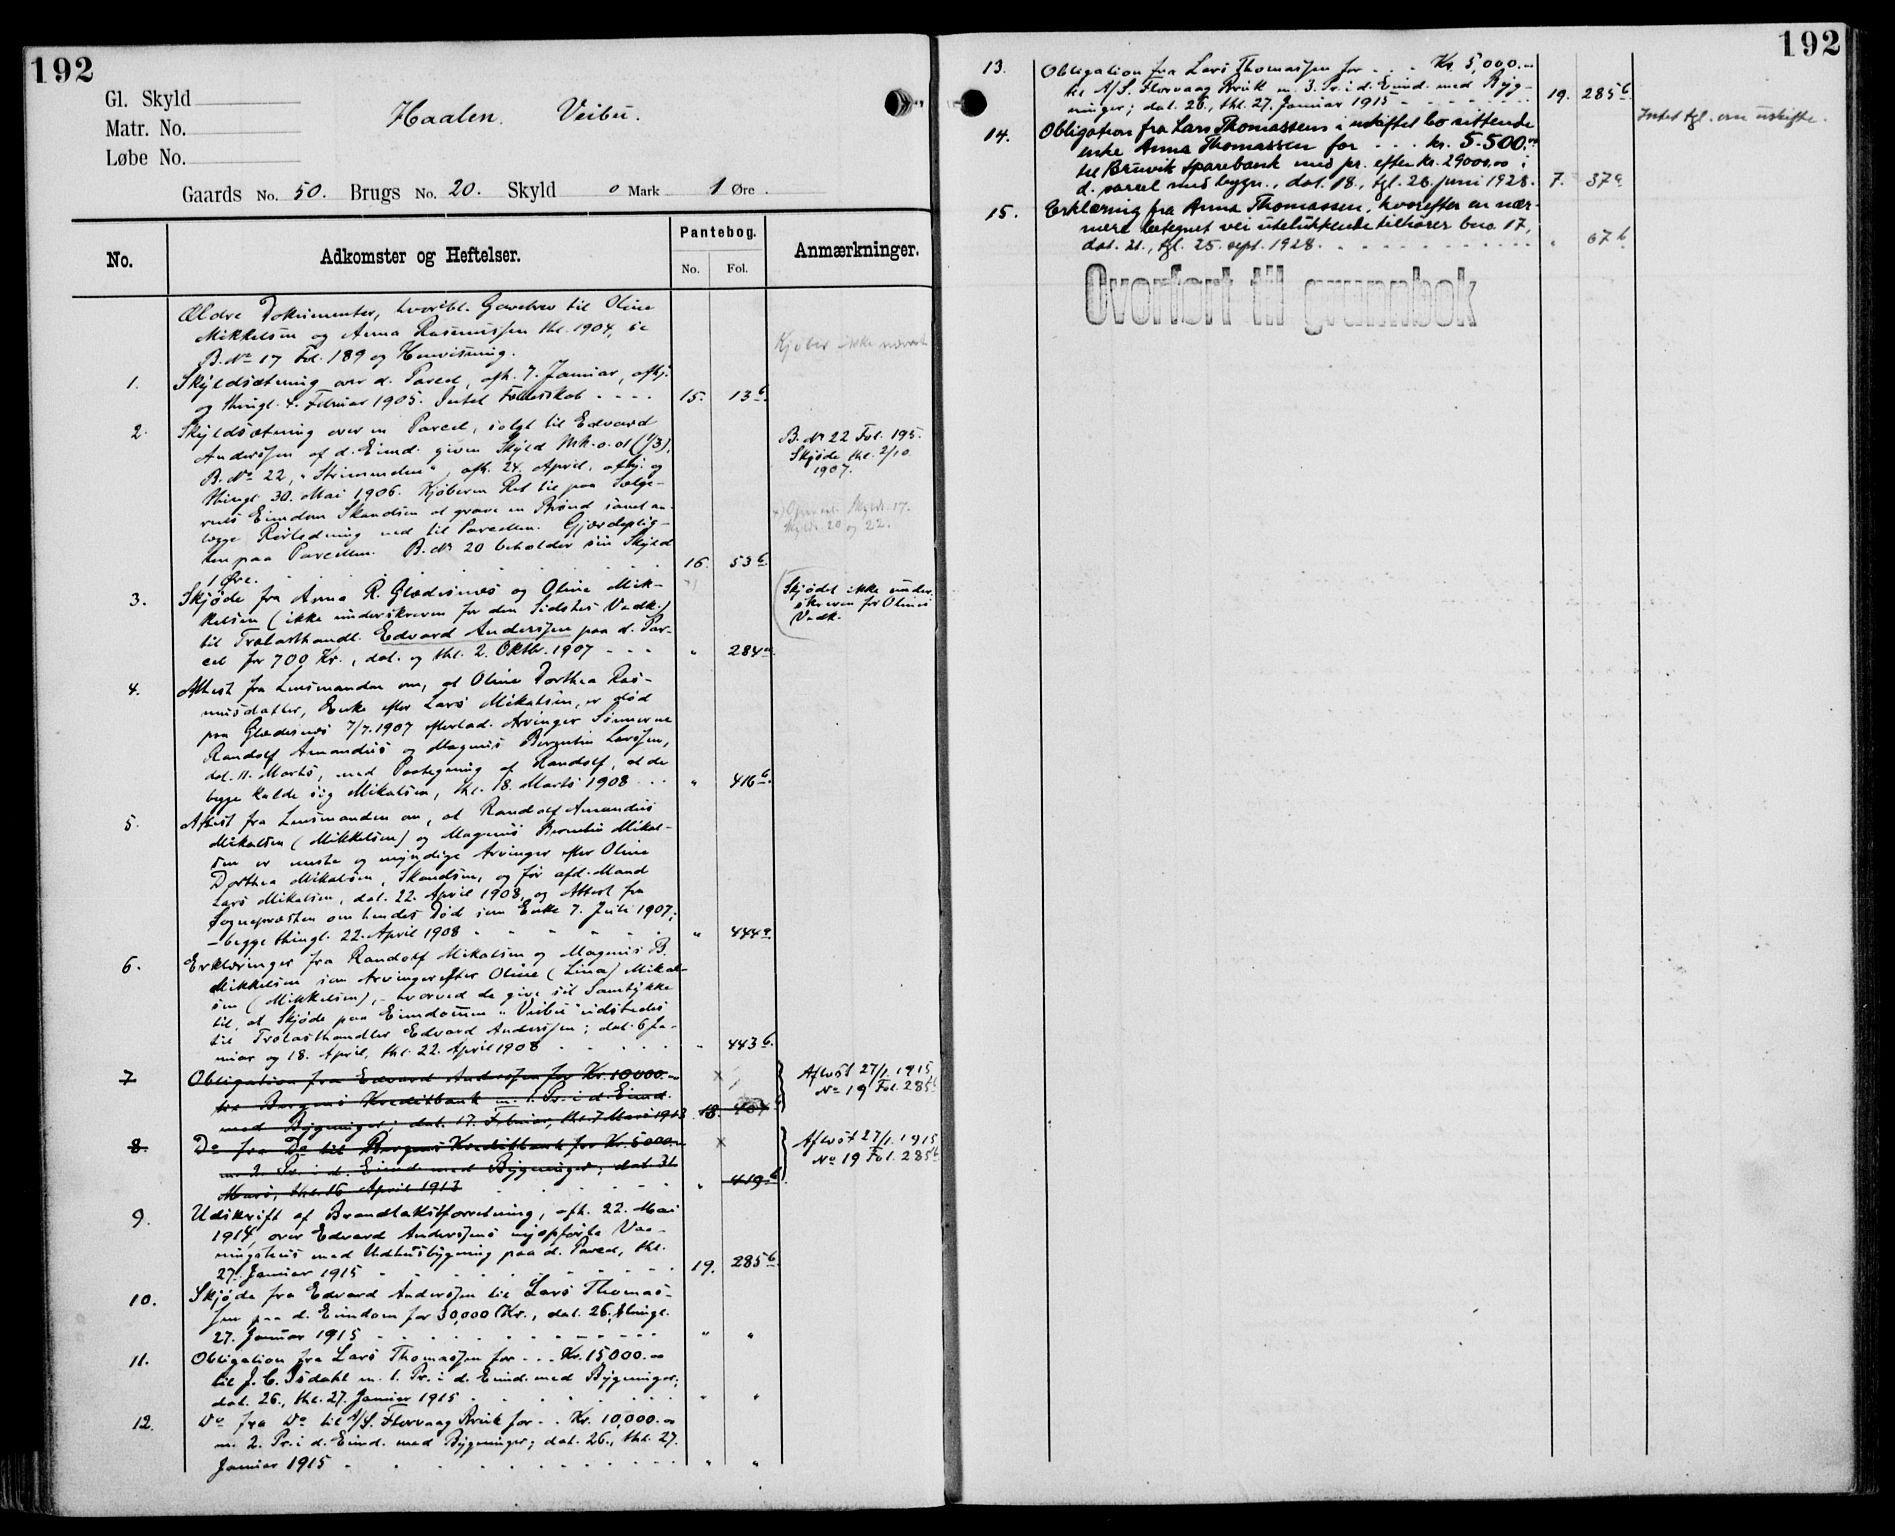 192
Gl. Skyld
Matr. No.
Løbe No.
Haalen. Veibu.
Gaards No. 50. Brugs No. 20. Skyld 0 Mark 1 Øre.
No.
Adkomster og Heftelser.
Pantebog.
No. Fol.
Anmærkninger.
Ældre Dokumenter, hvoribl. Gavebrev til Oline
Mikkelsen og Anna Rasmussen thl. 1904, se
B. No 17 Fol. 189 og Henvisning.
Kjøber ikke nævnt
1. Skyldsætning over d. Parcel, afh. 7. Januar, afhj.
og thingl. 4. Februar 1905. Intet Fællesskab - - - - 15. 13b.
2. Skyldsætning over en Parcel, solgt til Edvard
Anderssen af d. Eiend. given Skyld Mk. 0.01 (1/3),
B. No 22, "Strimmelen", afh. 24. April, afhj. og
thingl. 30. Mai 1906. Kjøberen Ret til paa Sælge-
rnes Eiendom Skandsen at grave en Brønd samt an-
lægge Rørledning ned til Parcellen. Gjærdeplig-
ten paa Parcellen. B. No 20 beholder sin Skyld
1 Øre. 16. 53b
B. No 22 Fol. 195.
Skjøde thl. 2/10
1907.
20 og 22.
3. Skjøde fra Anna R. Glædesnes og Oline Mik-
kelsen (ikke underskreven for den Sidstes Vedk.)
til Trælasthandl. Edvard Anderssen paa d. Par-
cel for 700 Kr., dat. og thl. 2. Oktbr. 1907 - - - " 284a.
Skjødet ikke under-
skreven for Olines
Vedk.
4. Attest fra Lensmanden om, at Oline Dorthea Ras-
musdatter, Enke efter Lars Mikalsen, er død
paa Glædesnes 7/7. 1907 efterlad. Arvinger Sønnerne
Randolf Amandus og Magnus Berentin Larssen,
dat. 11. Marts, med Paategning af Randolf, at de
begge kalde sig Mikalsen, thl. 18. Marts 1908 - - - " 416b.
5. Attest fra Lensmanden om, at Randolf Amandus
Mikalsen (Mikkelsen) og Magnus Berentin Mikal-
sen er eneste og myndige Arvinger efter Oline
Dorthea Mikalsen, Skandsen, og før afd. Mand
Lars Mikalsen, dat. 22. April 1908, og Attest fra
Sognepresten om hendes Død som Enke 7. Juli 1907;
- begge thingl. 22. April 1908 " 444a
6. Erklæringer fra Randolf Mikalsen og Magnus B.
Mikkelsen som Arvinger efter Oline (Lina) Mikal-
sen (Mikkelsen), - hvorved de give sit Samtykke
til, at Skjøde paa Eiendommen "Veibu" udstedes
til Trælasthandler Edvard Anderssen; dat. 6 Ja-
nuar og 18. April, thl. 22. April 1908 " 443b.
7 Obligation fra Edvard Anderssen for Kr. 10000.00
til Bergens Kreditbank m. 1. Pr. i d. Eiend.
med Bygninger; dat. 17. Februar, thl. 7 Mars 1913 18. 407
x
Aflyst 27/1. 1915
No 19 Fol. 285b
8. Do fra Do til Bergens Kreditbank for Kr. 5000.00
m. 2. Pr. i d. Eiend. med Bygninger; dat. 31
Mars, thl. 16 April 1913 " 419b
x
Aflyst 27/1. 1915
No 19 Fol. 285b
9. Udskrift af Brandtakstforretning, afh. 22. Mai
1914, over Edvard Anderssens nyopførte Vaa-
ningshus med Udhusbygning paa d. Parcel, thl.
27. Januar 1915 19. 285b.
10. Skjøde fra Edvard Anderssen til Lars Thomas-
sen paa d. Eiendom for 30,000 Kr., dat. 26., thingl.
27. Januar 1915 " "
11. Obligation fra Lars Thomassen for - - - Kr. 15,000.00
til J. C. Isdahl m. 1. Pr. i d. Eiend. med Bygninger;
dat. 26., thl. 27. Januar 1915 " "
12. Do fra Do til A/S. Florvaag Bruk for - - Kr. 10,000.00
m. 2. Pr. i d. Eiend. med Bygninger; dat. 26., thl. 27.
Januar 1915 " "
192
13. Obligation fra Lars Thomassen for - - - Kr. 5,000.00
til A/S. Florvaag Bruk m. 3. Pr. i d. Eiend. med Byg-
ninger; dat. 26., thl. 27. Januar 1915 19. 285b
14. Obligation fra Lars Thomassens i uskiftet bo sittende
enke Anna Thomassen for - - - kr. 5.500.00
til Bruvik sparebank med pr. efter kr. 29000.00 i
d. parcel med bygn., dat. 18., tgl. 26. juni 1928. 7. 37a
Intet tgl. om uskifte.
15. Erklæring fra Anna Thomassen, hvorefter en nær-
mere betegnet vei utelukkende tilhører bno. 17,
dat. 21., tgl. 25. sept. 1928. " 67b
Overført til grunnbok